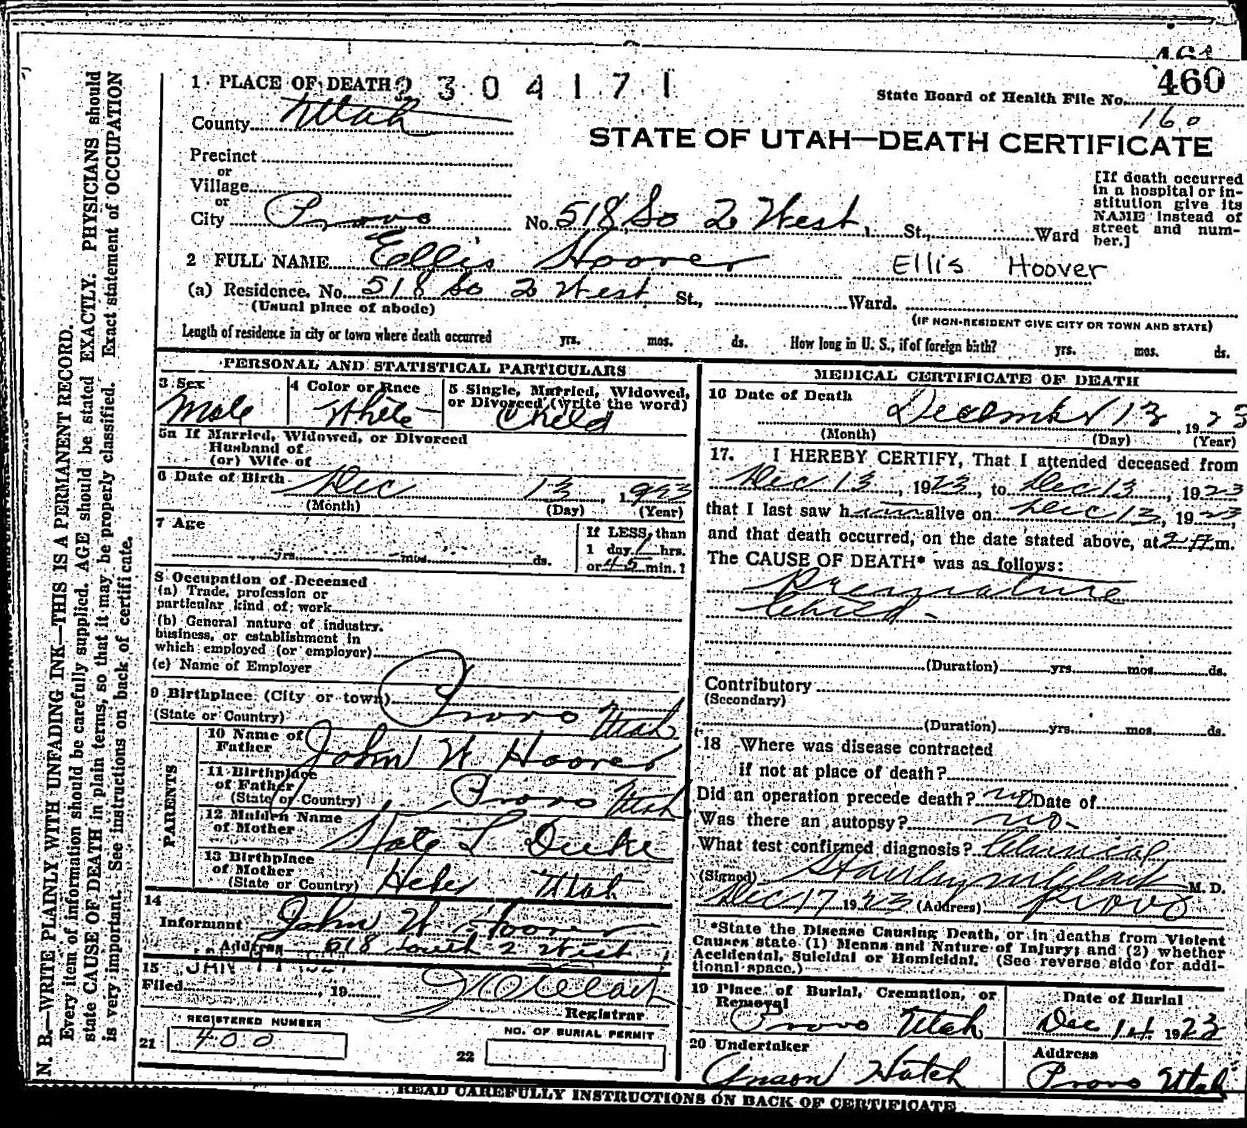 464
460
1 PLACE OF DEATH 2304171
State Board of Health File No.
160
County Utah
STATE OF UTAH—DEATH CERTIFICATE
Precinct
or
Village
or
City Provo No. 518 So 2 West, St., Ward
[If death occurred in a hospital or institution give its NAME instead of street and number.]
2 FULL NAME Ellis Hoover Ellis Hoover
(a) Residence. No. 518 So 2 West St., Ward.
(Usual place of abode) (IF NON-RESIDENT GIVE CITY OR TOWN AND STATE)
Length of residence in city or town where death occurred yrs. mos. ds. How long in U. S., if of foreign birth? yrs. mos. ds.
PERSONAL AND STATISTICAL PARTICULARS
3 Sex
Male
4 Color or Race
White
5 Single, Married, Widowed, or Divorced (write the word)
Child
5a If Married, Widowed, or Divorced
Husband of
(or) Wife of
6 Date of Birth Dec 13, 1923
(Month) (Day) (Year)
7 Age
yrs. mos. ds.
If LESS than
1 day 1 hrs.
or 45 min.?
8 Occupation of Deceased
(a) Trade, profession or
particular kind of work
(b) General nature of industry,
business, or establishment in
which employed (or employer)
(c) Name of Employer
9 Birthplace (City or town) Provo
(State or Country) Utah
PARENTS
10 Name of Father John W Hoover
11 Birthplace of Father
(State or Country) Provo Utah
12 Maiden Name of Mother L Duke
13 Birthplace of Mother
(State or Country) Heber Utah
14
Informant John W Hoover
Address 518 South 2 West
15 JAN
Filed , 19
Registrar
REGISTERED NUMBER
21 400
NO. OF BURIAL PERMIT
22
MEDICAL CERTIFICATE OF DEATH
16 Date of Death
December 13, 1923
(Month) (Day) (Year)
17. I HEREBY CERTIFY, That I attended deceased from
Dec 13, 1923, to Dec 13, 1923
that I last saw h alive on Dec 13, 1923,
and that death occurred, on the date stated above, at m.
The CAUSE OF DEATH* was as follows:
Premature
Child-
(Duration) yrs. mos. ds.
Contributory
(Secondary)
(Duration) yrs. mos. ds.
18 Where was disease contracted
if not at place of death?
Did an operation precede death? no Date of
Was there an autopsy? no-
What test confirmed diagnosis? Clinical
(Signed) M. D.
Dec 17 1923 (Address) Provo
*State the Disease Causing Death, or in deaths from Violent
Causes state (1) Means and Nature of Injury; and (2) whether
Accidental, Suicidal or Homicidal. (See reverse side for addi-
tional space.)
19 Place of Burial, Cremation, or
Removal
Provo Utah
Date of Burial
Dec 14 1923
20 Undertaker
Hatch
Address
Provo Utah
READ CAREFULLY INSTRUCTIONS ON BACK OF CERTIFICATE
N. B.—WRITE PLAINLY WITH UNFADING INK—THIS IS A PERMANENT RECORD.
Every item of information should be carefully supplied. AGE should be stated EXACTLY. PHYSICIANS should
state CAUSE OF DEATH in plain terms, so that it may be properly classified. Exact statement of OCCUPATION
is very important. See instructions on back of certificate.